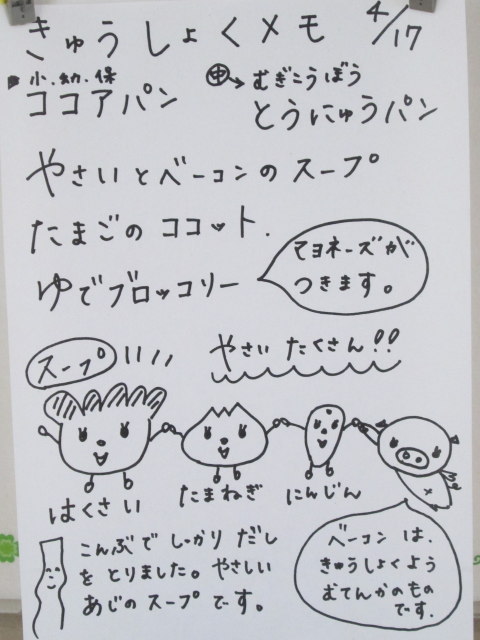 きゅうしょくメモ 4/17
小.幼.保
ココアパン
中→むぎこうぼう
とうにゅうパン
やさいとベーコンのスープ
たまごのココット.
ゆでブロッコリー
マヨネーズが
つきます。
スープ
やさい たくさん!!
はくさい
たまねぎ
にんじん
こんぶで しっかり だし
をとりました。やさしい
あじのスープです。
ベーコンは、
きゅうしょくよう
むてんかのもの
です.